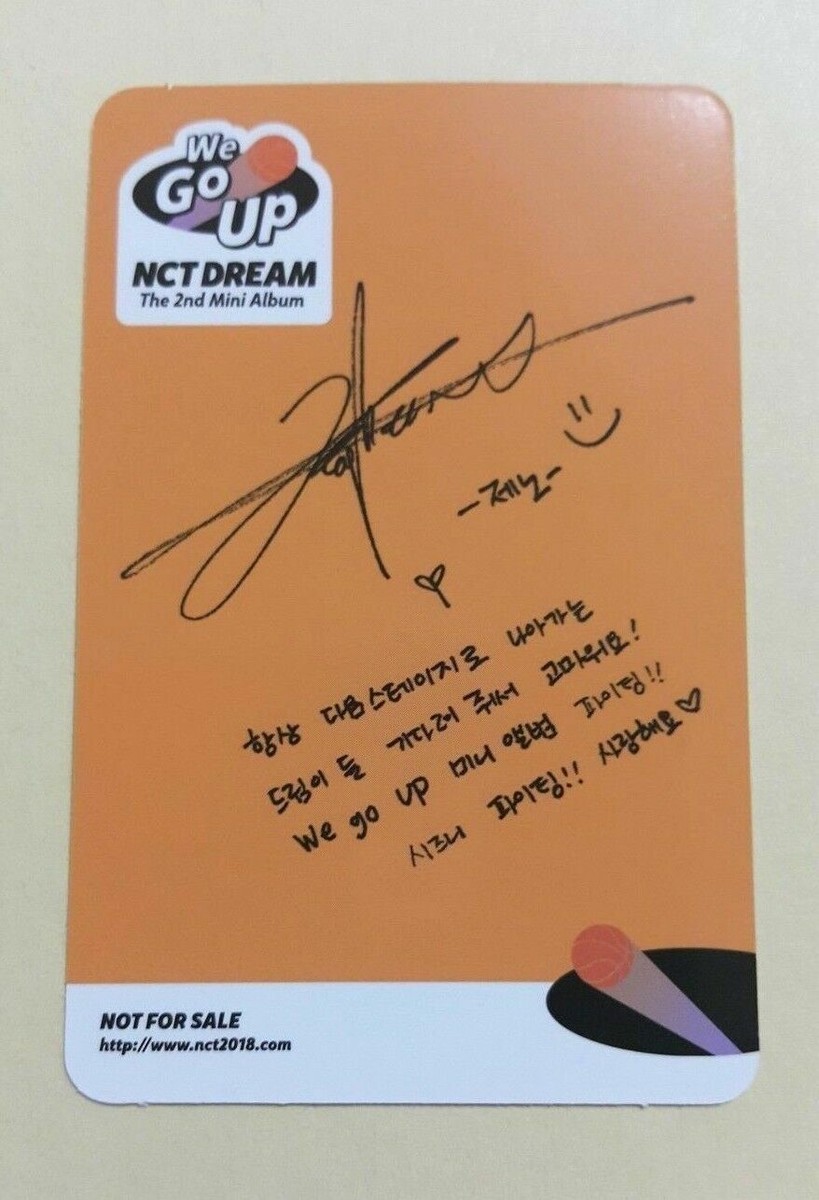 We
Go
Up
NCT DREAM
The 2nd Mini Album
-제노-
항상 다음스테이지로 나아가는
드림이들 기다려 줘서 고마워요!
We go up 미니 앨범 파이팅!!
시즈니 파이팅!! 사랑해요♡
NOT FOR SALE
http://www.nct2018.com